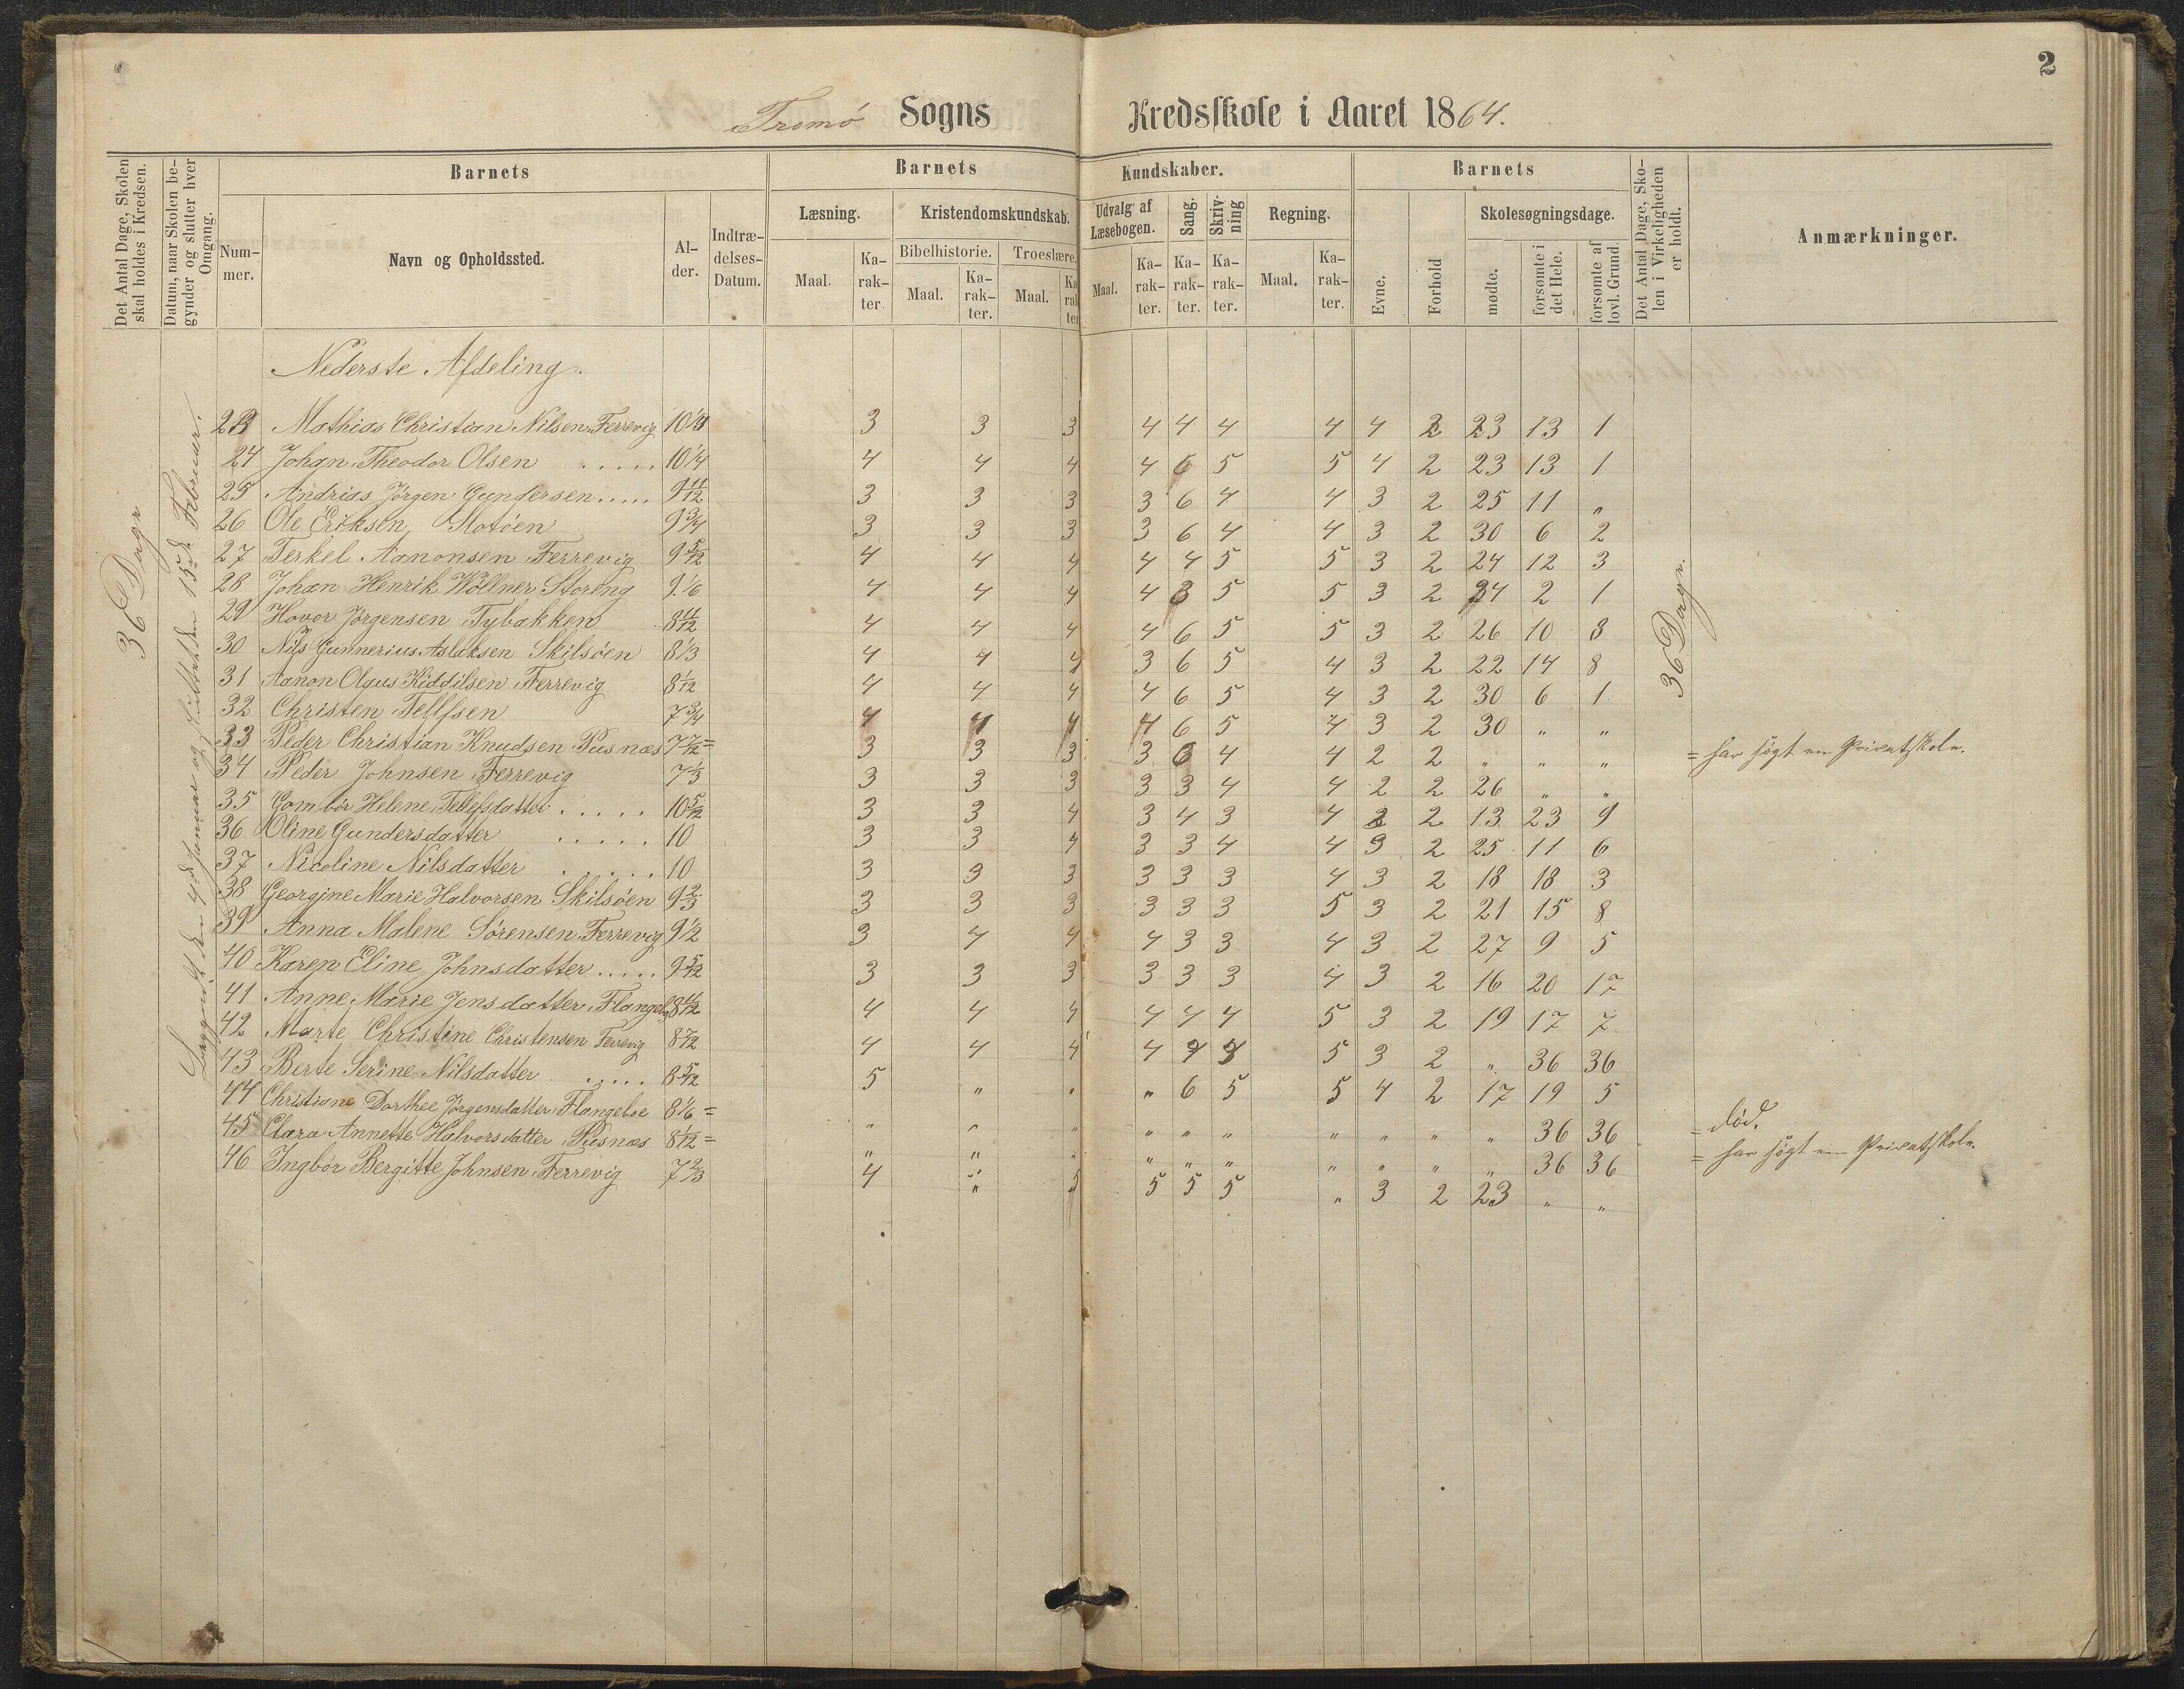 2
Tromö Sogns Kredsskole i Aaret 1864.
Det Antal Dage, Skolen skal holdes i Kredsen.
Datum, naar Skolen begynder og slutter hver Omgang.
Barnets
Barnets
Kundskaber.
Barnets
Det Antal Dage, Skolen i Virkeligheden er holdt.
Anmærkninger.
Nummer.
Navn og Opholdssted.
Alder.
Indtrædelses-Datum.
Læsning.
Kristendomskundskab.
Udvalg af Læsebogen.
Sang.
Skrivning
Regning.
Evne.
Forhold
Skolesøgningsdage.
Bibelhistorie.
Troeslære.
Maal.
Karakter.
Maal.
Karakter.
Maal.
Karakter
Maal.
Karakter.
Karakter.
Karakter.
Maal.
Karakter.
mødte.
forsømte i det Hele.
forsømte af lovl. Grund.
36 Dage
36 Dage.
Nederste Afdeling.
23 Mathias Christian Nilsen Ferrevig 3 3 3 4 4 4 4 4 2 23 13 1
24 Johan Theodor Olsen ..... 10 1/4 4 4 4 4 6 5 5 4 2 23 13 1
25 Andrias Jörgen Gundersen ..... 9 11/12 3 3 3 3 6 4 4 3 2 25 11 "
26 Ole Eriksen 9 3/4 3 3 3 3 6 4 4 3 2 30 6 2
27 Terkel Aanonsen Ferrevig 9 5/12 4 4 4 4 4 5 5 3 2 24 12 3
28 Johan Henrik Wöllner Storeng 9 1/6 4 4 4 4 3 5 5 3 2 34 2 1
29 Hovor Jörgensen Tybakken 8 11/12 4 4 4 4 6 5 5 3 2 26 10 8
30 Nils Gunnerius Aslaksen Skilsöen 8 1/3 4 4 4 3 6 5 4 3 2 22 14 8
31 Aanon Olaus Kiddilsen Ferrevig 8 1/12 4 4 4 4 6 5 4 3 2 30 6 1
32 Christen Tellfsen 7 3/4 4 4 4 4 6 5 4 3 2 30 " "
33 Peder Christian Knudsen Pusnæs 7 7/12 = 3 3 3 3 6 4 4 2 2 " " " = har sögt en Privatskole.
34 Peder Johnsen Ferrevig 7 1/3 3 3 3 3 3 4 4 2 2 26 " "
35 Gombör Helene Tellefsdatter ..... 10 5/12 3 3 4 3 4 3 4 2 13 23 9
36 Oline Gundersdatter ..... 10 3 3 4 3 3 4 4 3 2 25 11 6
37 Nicoline Nilsdatter ..... 10 3 3 3 3 3 3 4 3 2 18 18 3
38 Georgine Marie Halvorsen Skilsöen 9 2/3 3 3 3 3 3 3 5 3 2 21 15 8
39 Anna Malene Sörensen Ferrevig 9 1/2 3 4 4 4 3 3 4 3 2 27 9 5
40 Karen Eline Johnsdatter ..... 9 5/12 3 3 3 3 3 3 4 3 2 16 20 17
41 Anne Marie Jensdatter 4 4 4 4 4 4 5 3 2 19 17 7
42 Marte Christine Christensen Ferrevig 8 7/12 4 4 4 4 4 5 3 2 " 36 36
43 Berte Serine Nilsdatter ..... 8 5/12 5 " " " 6 5 5 4 2 17 19 5
44 Christiane Dorthee Jörgensdatter Flangeboe 8 1/6 = " " " " " " " " " " 36 36 = död.
45 Clara Annette Halvorsdatter Pusnæs 8 1/12 = " " " " " " " " " " 36 36 = har sögt en Privatskole.
46 Ingbör Bergitte Johnsen Ferrevig 7 2/3 4 " 5 5 5 5 " 3 2 23 " "